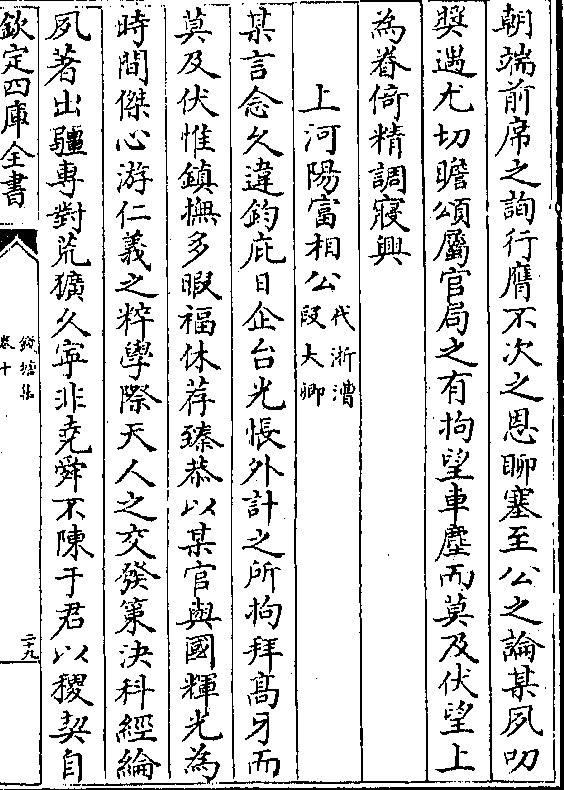 朝端前席之詢行膺不次之恩聊塞至公之論某夙叨
奬遇尤切瞻頌屬官局之有拘望車塵而莫及伏望上
為眷倚精調寢興
上河陽富相公代浙漕段大卿
某言念久違鈞庇日企台光悵外計之所拘拜髙牙而
莫及伏惟鎮撫多暇福休荐臻恭以某官與國輝光為
時間傑心游仁義之粹學際天人之交發策決科經綸
夙著出疆專對荒獷久寜非堯舜不陳于君以稷契自
欽定四庫全書
錢塘集
卷十
二十九